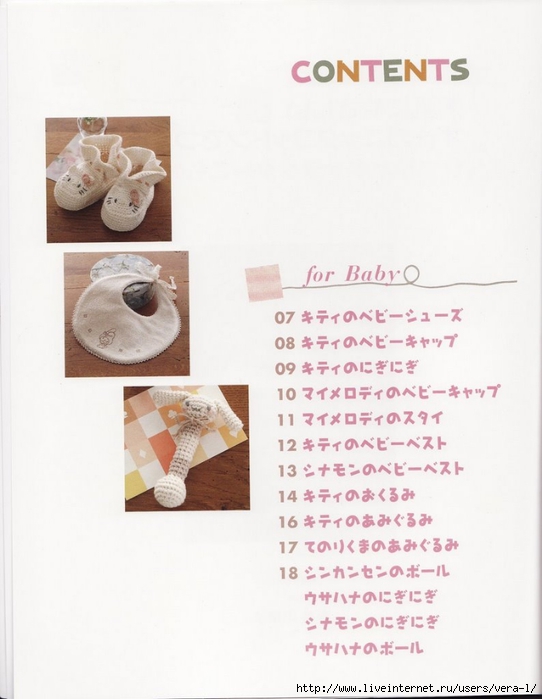 CONTENTS
for Baby
07 キティのベビーシューズ
08 キティのベビーキャップ
09 キティのにぎにぎ
10 マイメロディのベビーキャップ
11 マイメロディのスタイ
12 キティのベビーベスト
13 シナモンのベビーベスト
14 キティのおくるみ
16 キティのあみぐるみ
17 てのりくまのあみぐるみ
18 シンカンセンのボール
ウサハナのにぎにぎ
シナモンのにぎにぎ
ウサハナのボール
http://www.liveinternet.ru/users/vera-l/